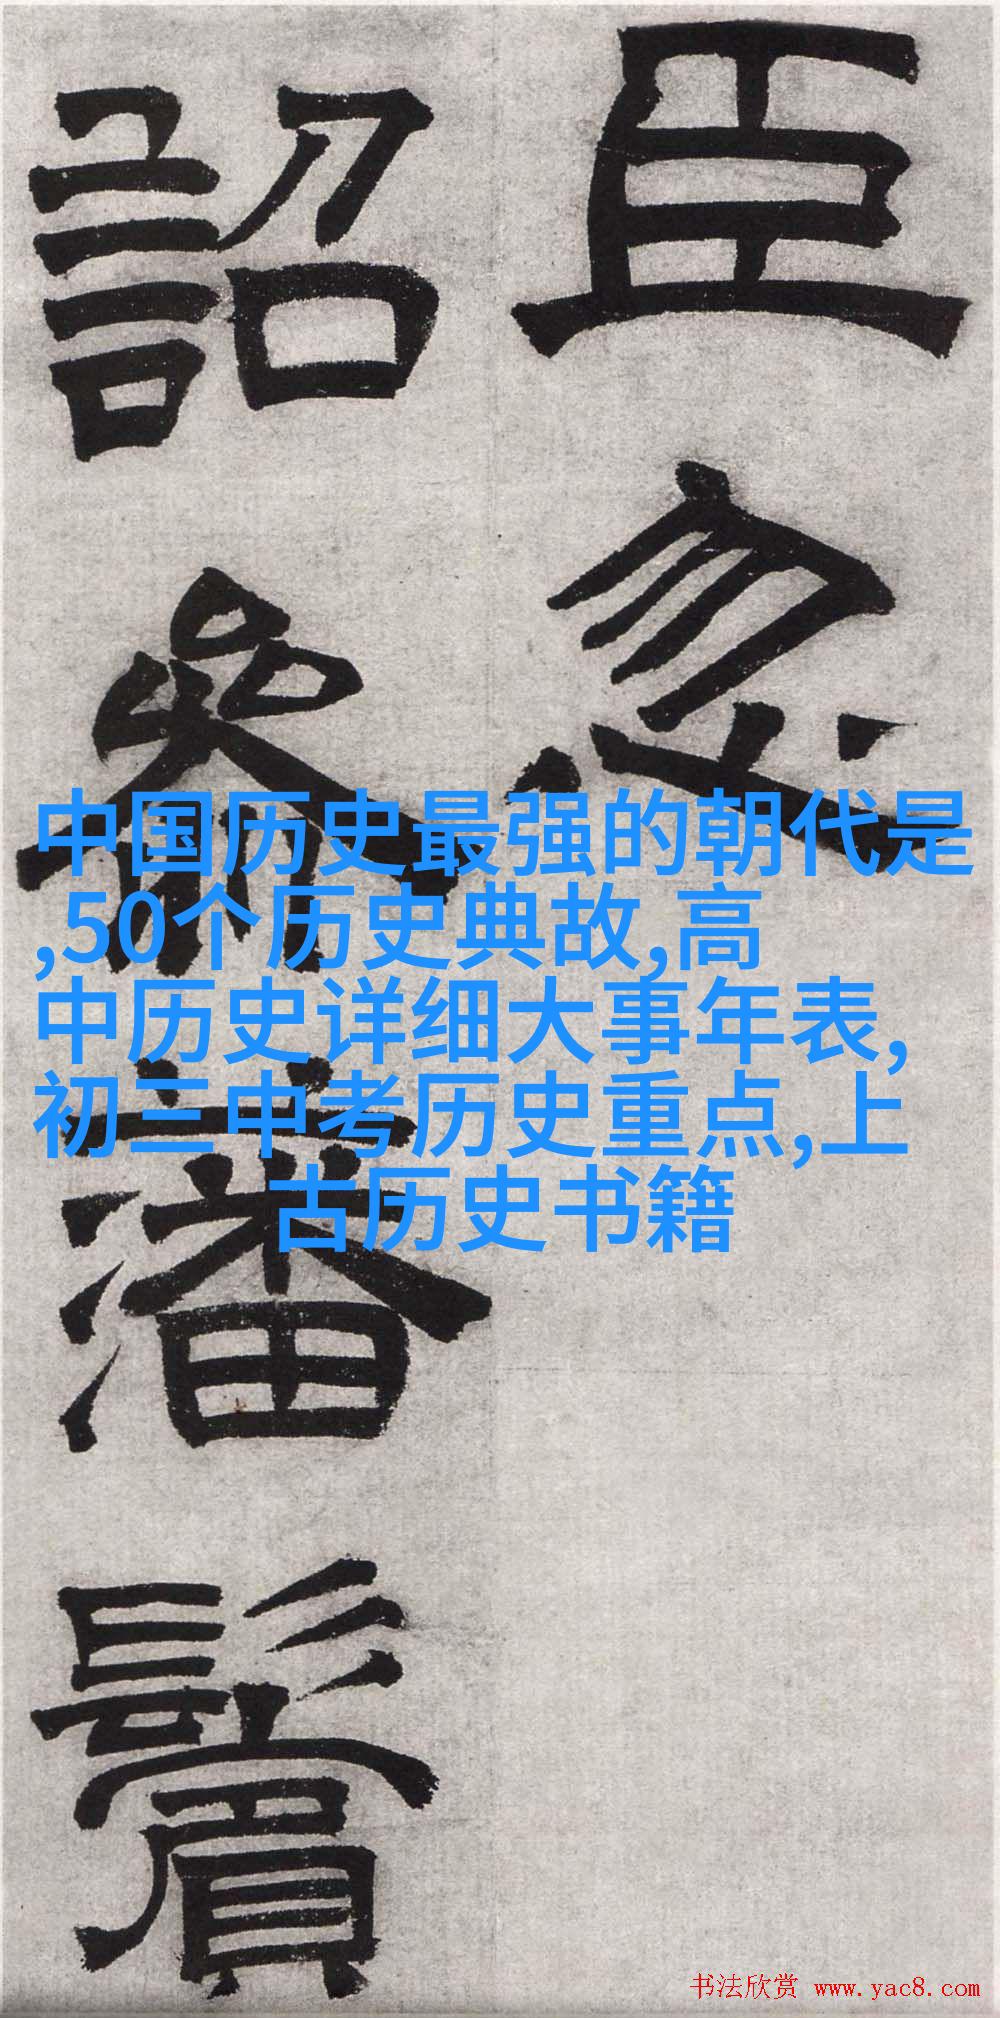 臣忽
詔參潘鬢
中国历史最强的朝代是
,50个历史典故,高
中历史详细大事年表,
初三中考历史重点,上
古历史书籍
书法欣赏 www.yac8.com